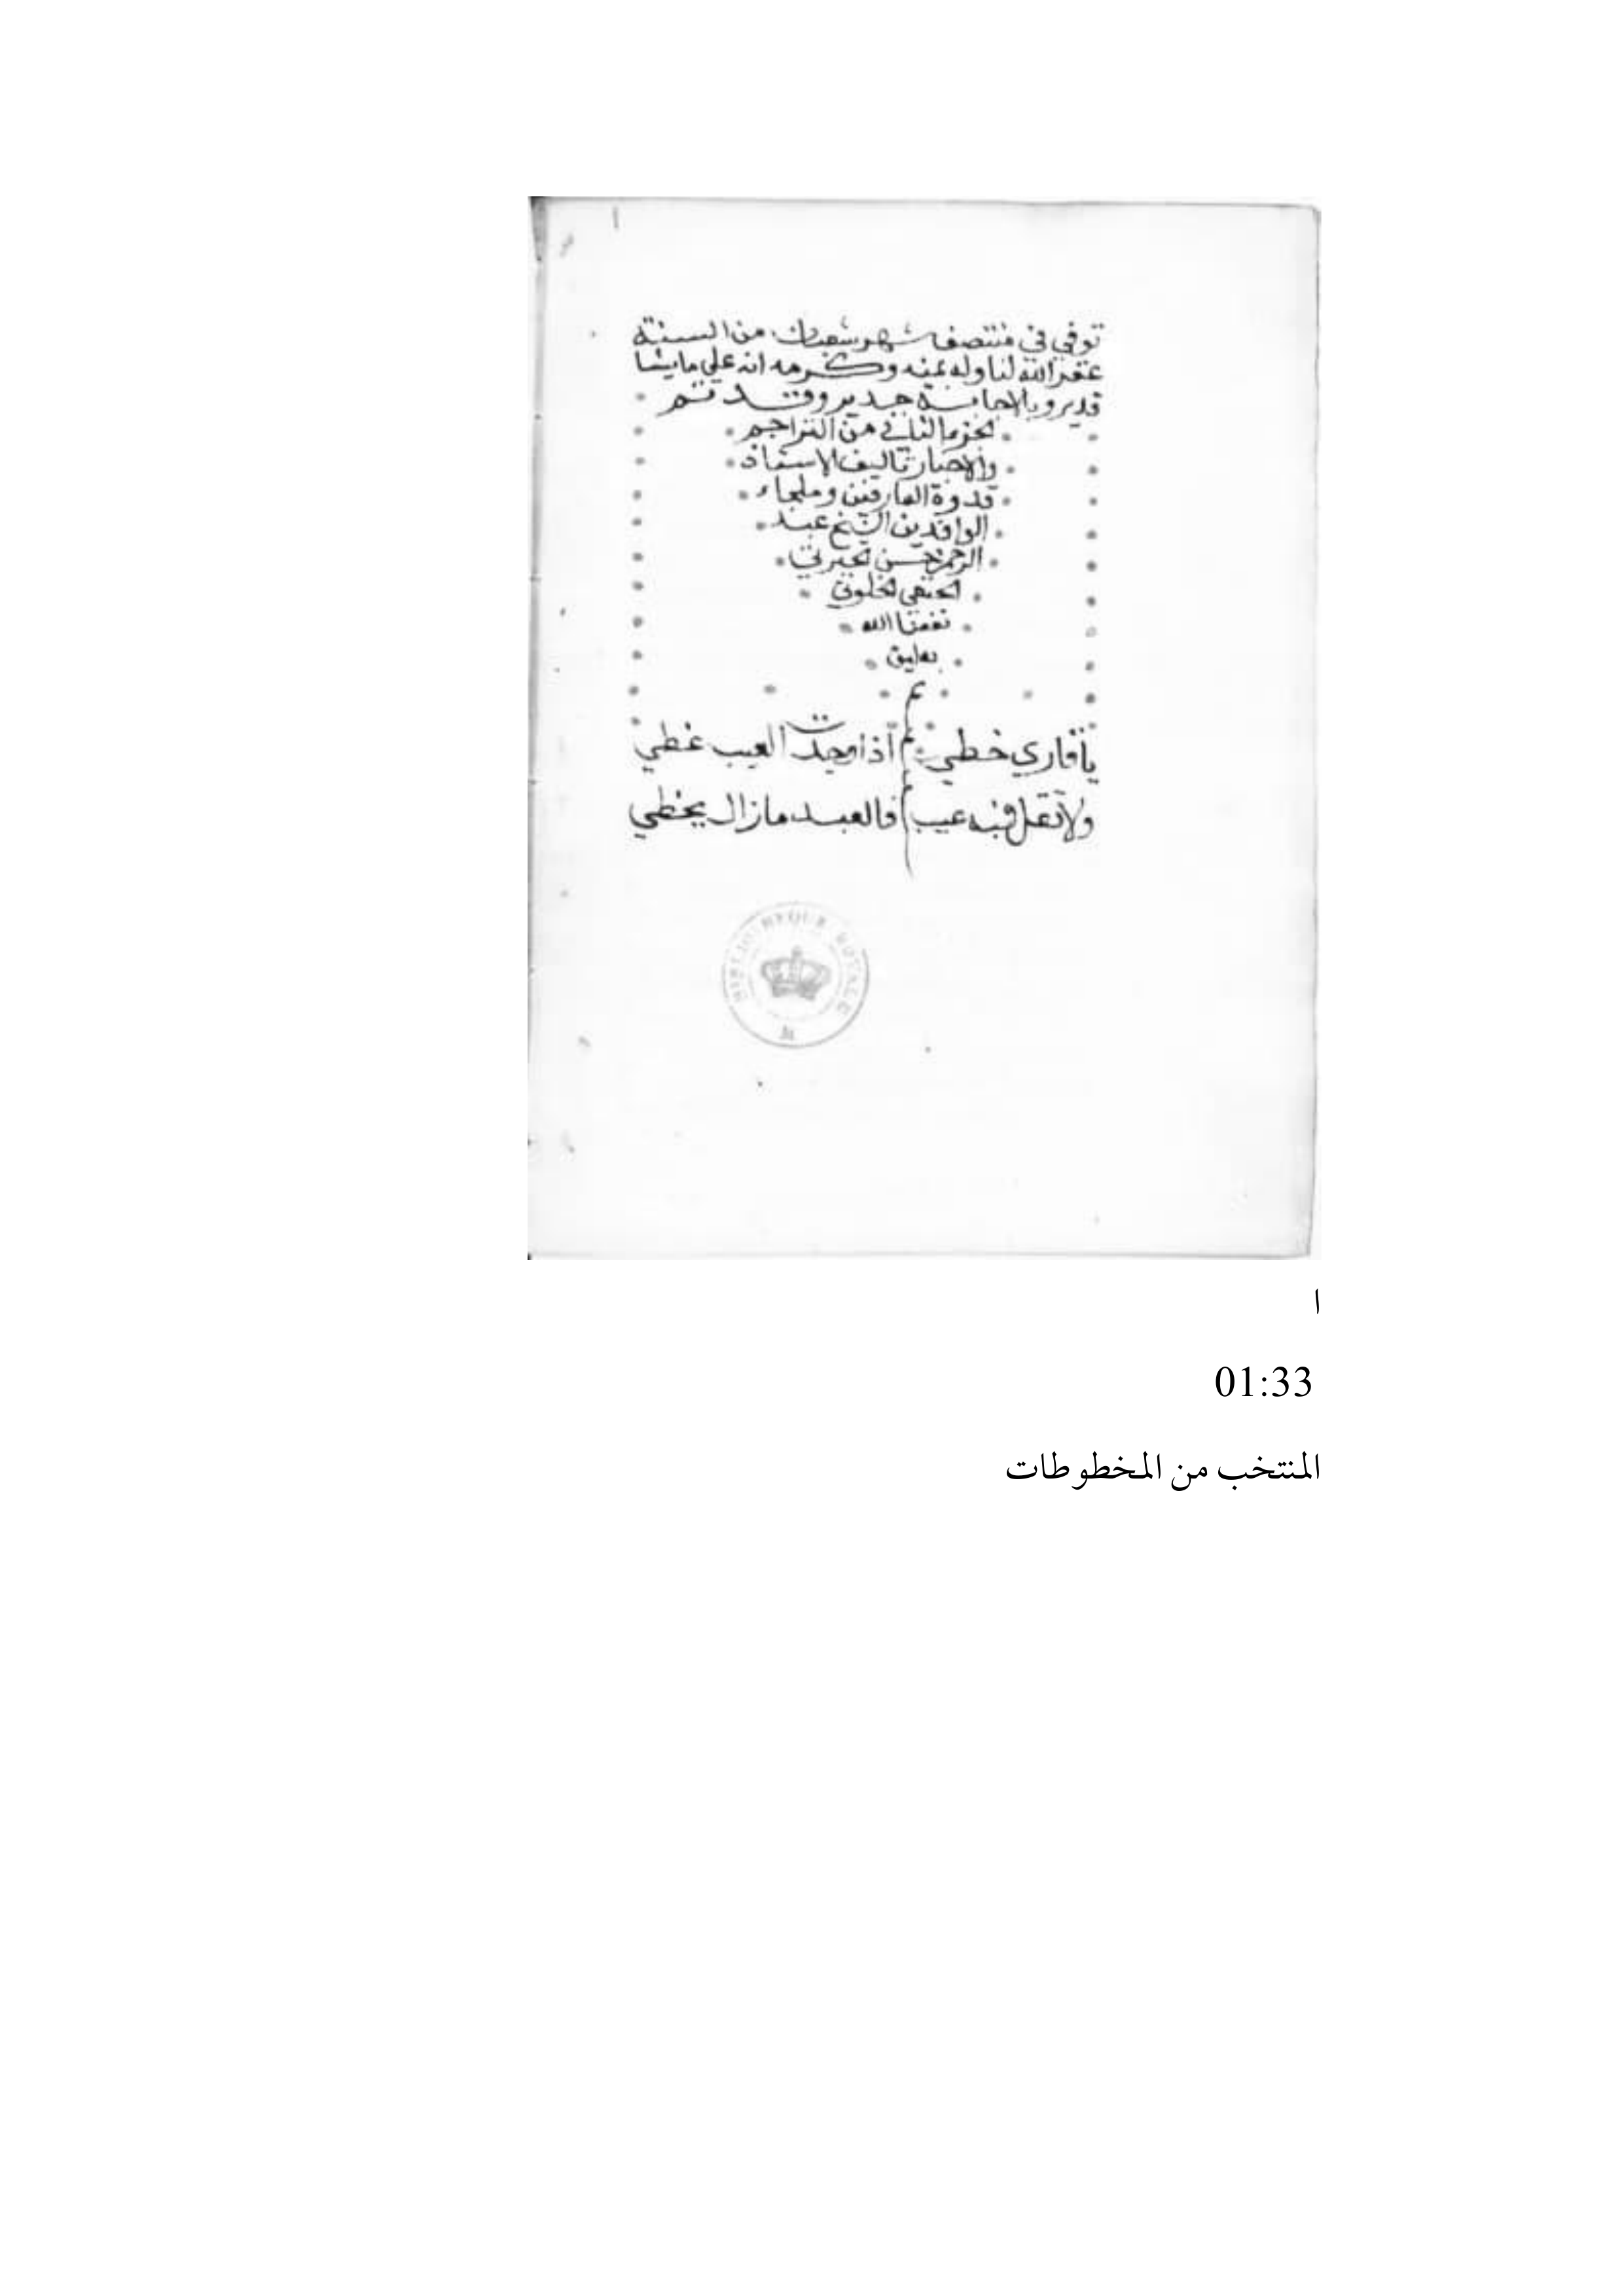 توفي في منتصف شهر شعبان من السنة
غفر الله لنا وله بمنه وكرمه انه علي ما يشا
قدير وبالاجابة جدير وقد تم
الجزء الثاني من التراجم
والاخبار تاليف الاستاذ
قدوة العارفين وملجاء
الوافدين الشيخ عبد
الرحمن حسن الجبرتي
الحنفي الخلوتي
نفعنا الله
به امين
م
يا قاري خطي اذا وجدت العيب غطي
ولا تقل فيه عيب فالعبد مازال يخطي
BIBLIOTHEQUE ROYALE
ا
01:33
المنتخب من المخطوطات